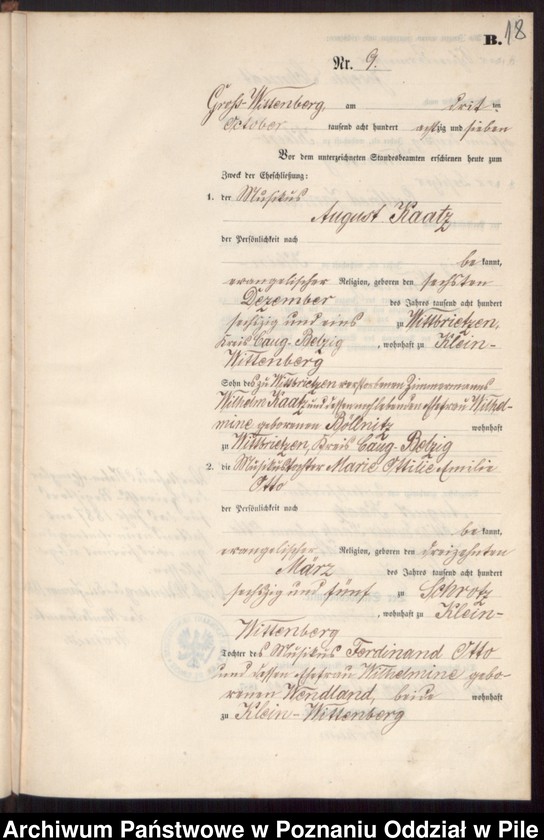 B. 18
Nr. 9.
Groß-Wittenberg, am drit ten
October tausend acht hundert achtzig und sieben
Vor dem unterzeichneten Standesbeamten erschienen heute zum
Zweck der Eheschließung:
1. der Musikus
August Kaatz
der Persönlichkeit nach
be kannt,
evangelischer Religion, geboren den sechsten
Dezember des Jahres tausend acht hundert
sechszig und eins zu Wittbrietzen,
Kreis Zaug-Belzig, wohnhaft zu Klein-
Wittenberg
Sohn des zu Wittbrietzen verstorbenen Zimmermanns
Wilhelm Kaatz und dessen noch lebenden Ehefrau Wilhel-
mine geborenen Böllnitz wohnhaft
zu Wittbrietzen, Kreis Zaug-Belzig
2. die Musikustochter Marie Ottilie Emilie
Otto
der Persönlichkeit nach
be kannt,
evangelischer Religion, geboren den dreizehnten
März des Jahres tausend acht hundert
sechszig und fünf zu Schrotz
, wohnhaft zu Klein-
Wittenberg
Tochter des Musikus Ferdinand Otto
und dessen Ehefrau Wilhelmine gebo-
renen Wendland, beide wohnhaft
zu Klein-Wittenberg
Archiwum Państwowe w Poznaniu Oddział w Pile